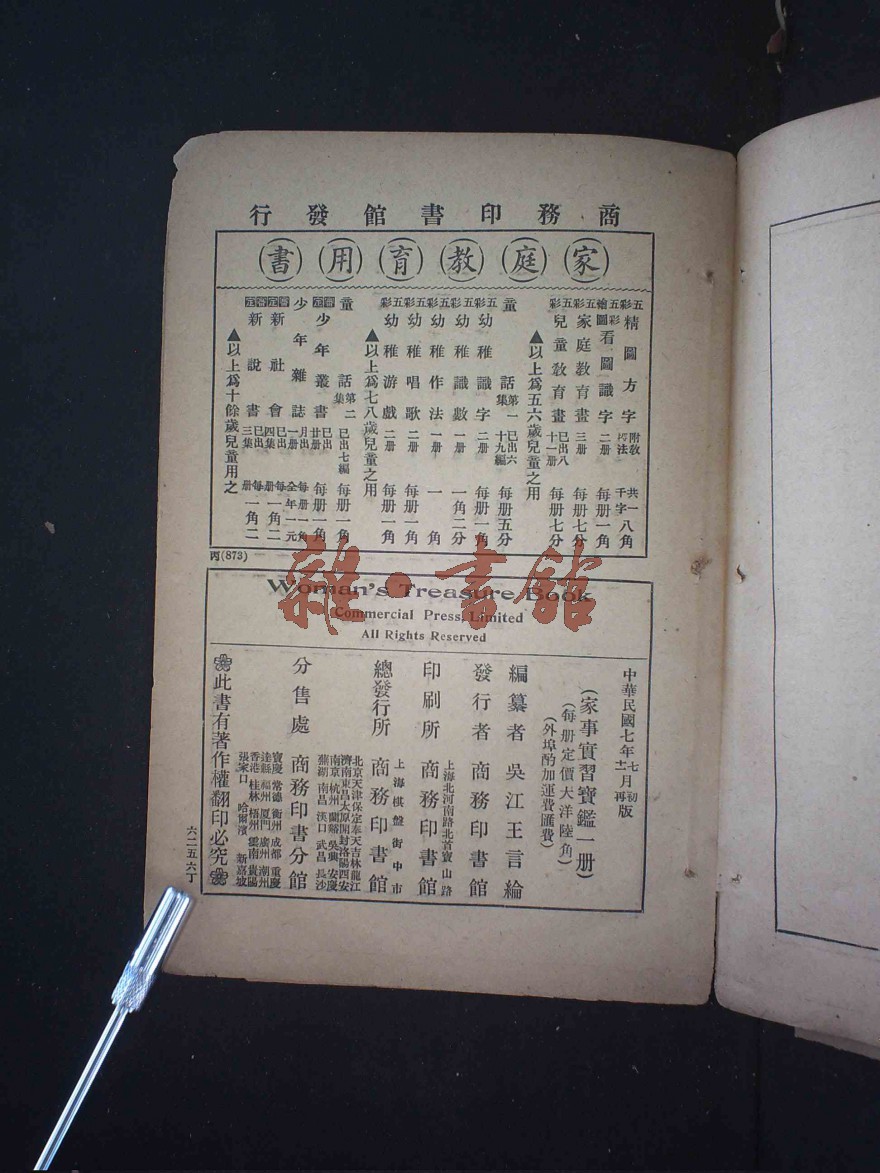 商務印書館發行
家庭教育用書
五彩精圖方字 附教授法 共一千字 八角
五彩繪圖看圖識字 二册 每册一角
五彩家庭教育畫 三册 每册七分
五彩兒童教育畫 已出八十一册 每册七分
▲以上爲五六歲兒童之用
童話第一集 已出六十九編 每册五分
五彩幼稚識字 二册 每册一角
五彩幼稚識數 一册 一角二分
五彩幼稚作法 一册 一角
五彩幼稚唱歌 二册 每册一角
五彩幼稚游戲 二册 每册一角
▲以上爲七八歲兒童之用
童話第二集 已出七編 每册一角
少年叢書 已出廿册 每册一角
少年雜誌 月出一册 每册一角 全年一元
新社會 已出四集 每册一角二
新說書 已出三集 每册一角二
▲以上爲十餘歲兒童用之
丙(873)
Woman's Treasure Book
Commercial Press, Limited
All Rights Reserved
中華民國七年七月初版
十二月再版
(家事實習寶鑑一册)
(每册定價大洋陸角)
(外埠酌加運費匯費)
編纂者 吳江王言綸
發行者 商務印書館
印刷所 上海北河南路北首寶山路 商務印書館
總發行所 上海棋盤街中市 商務印書館
分售處 商務印書分館
北京 天津 保定 奉天 吉林 龍江
濟南 東昌 太原 開封 洛陽 西安
南京 杭州 蘭谿 吳興 安慶
蕪湖 南昌 漢口 武昌 長沙
寶慶 常德 衡州 成都 重慶
達縣 福州 厦門 廣州 潮州
香港 桂林 梧州 雲南 貴陽
張家口 哈爾濱 新嘉坡
此書有著作權翻印必究
六二五六丁
雜·書館